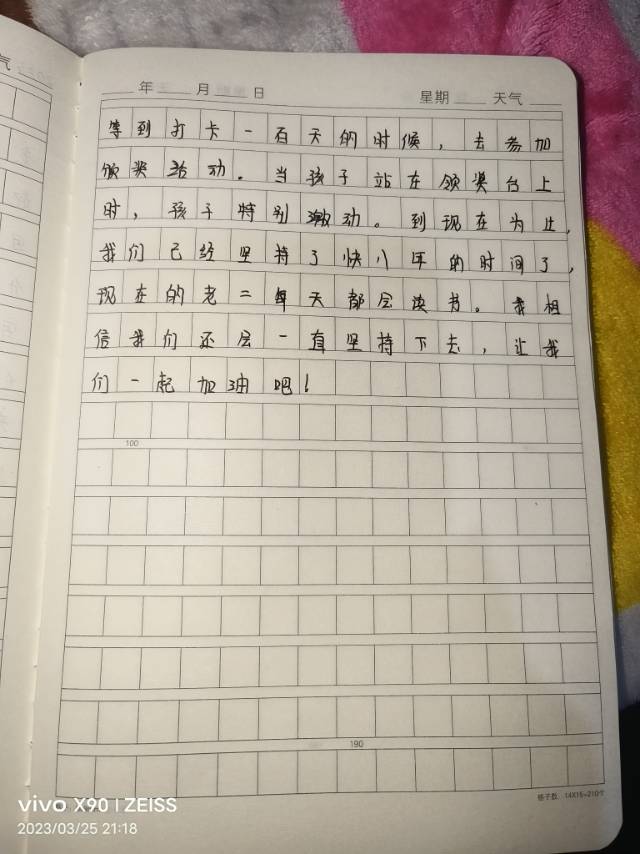 气
年 月 日 星期 天气
等到打卡一百天的时候，去参加
颁奖活动。当孩子站在领奖台上
时，孩子特别激动。到现在为止，
我们已经坚持了快八年的时间了，
现在的老二每天都会读书。我相
信我们还会一直坚持下去，让我
们一起加油吧！
100
190
格子数：14X15=210个
vivo X90 | ZEISS
2023/03/25 21:18